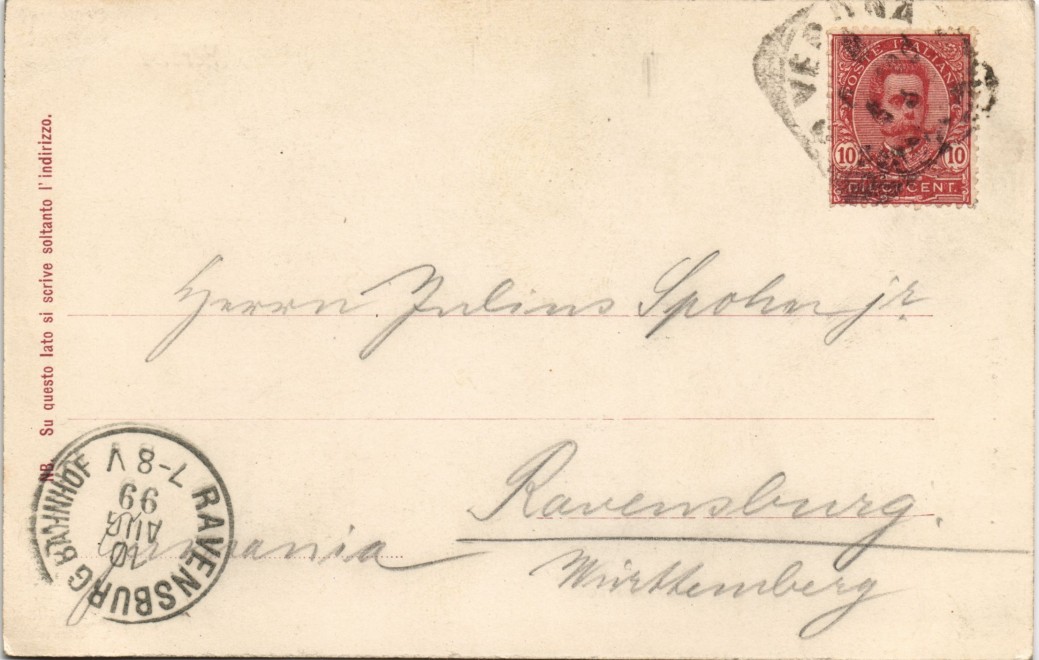 VERONA
POSTE ITALIANE
10 10
DIECI CENT.
NB. Su questo lato si scrive soltanto l'indirizzo.
Herrn Julius Spohn jr.
Ravensburg.
Germania
Württemberg
RAVENSBURG BAHNHOF
10
AUG
99
7-8 V